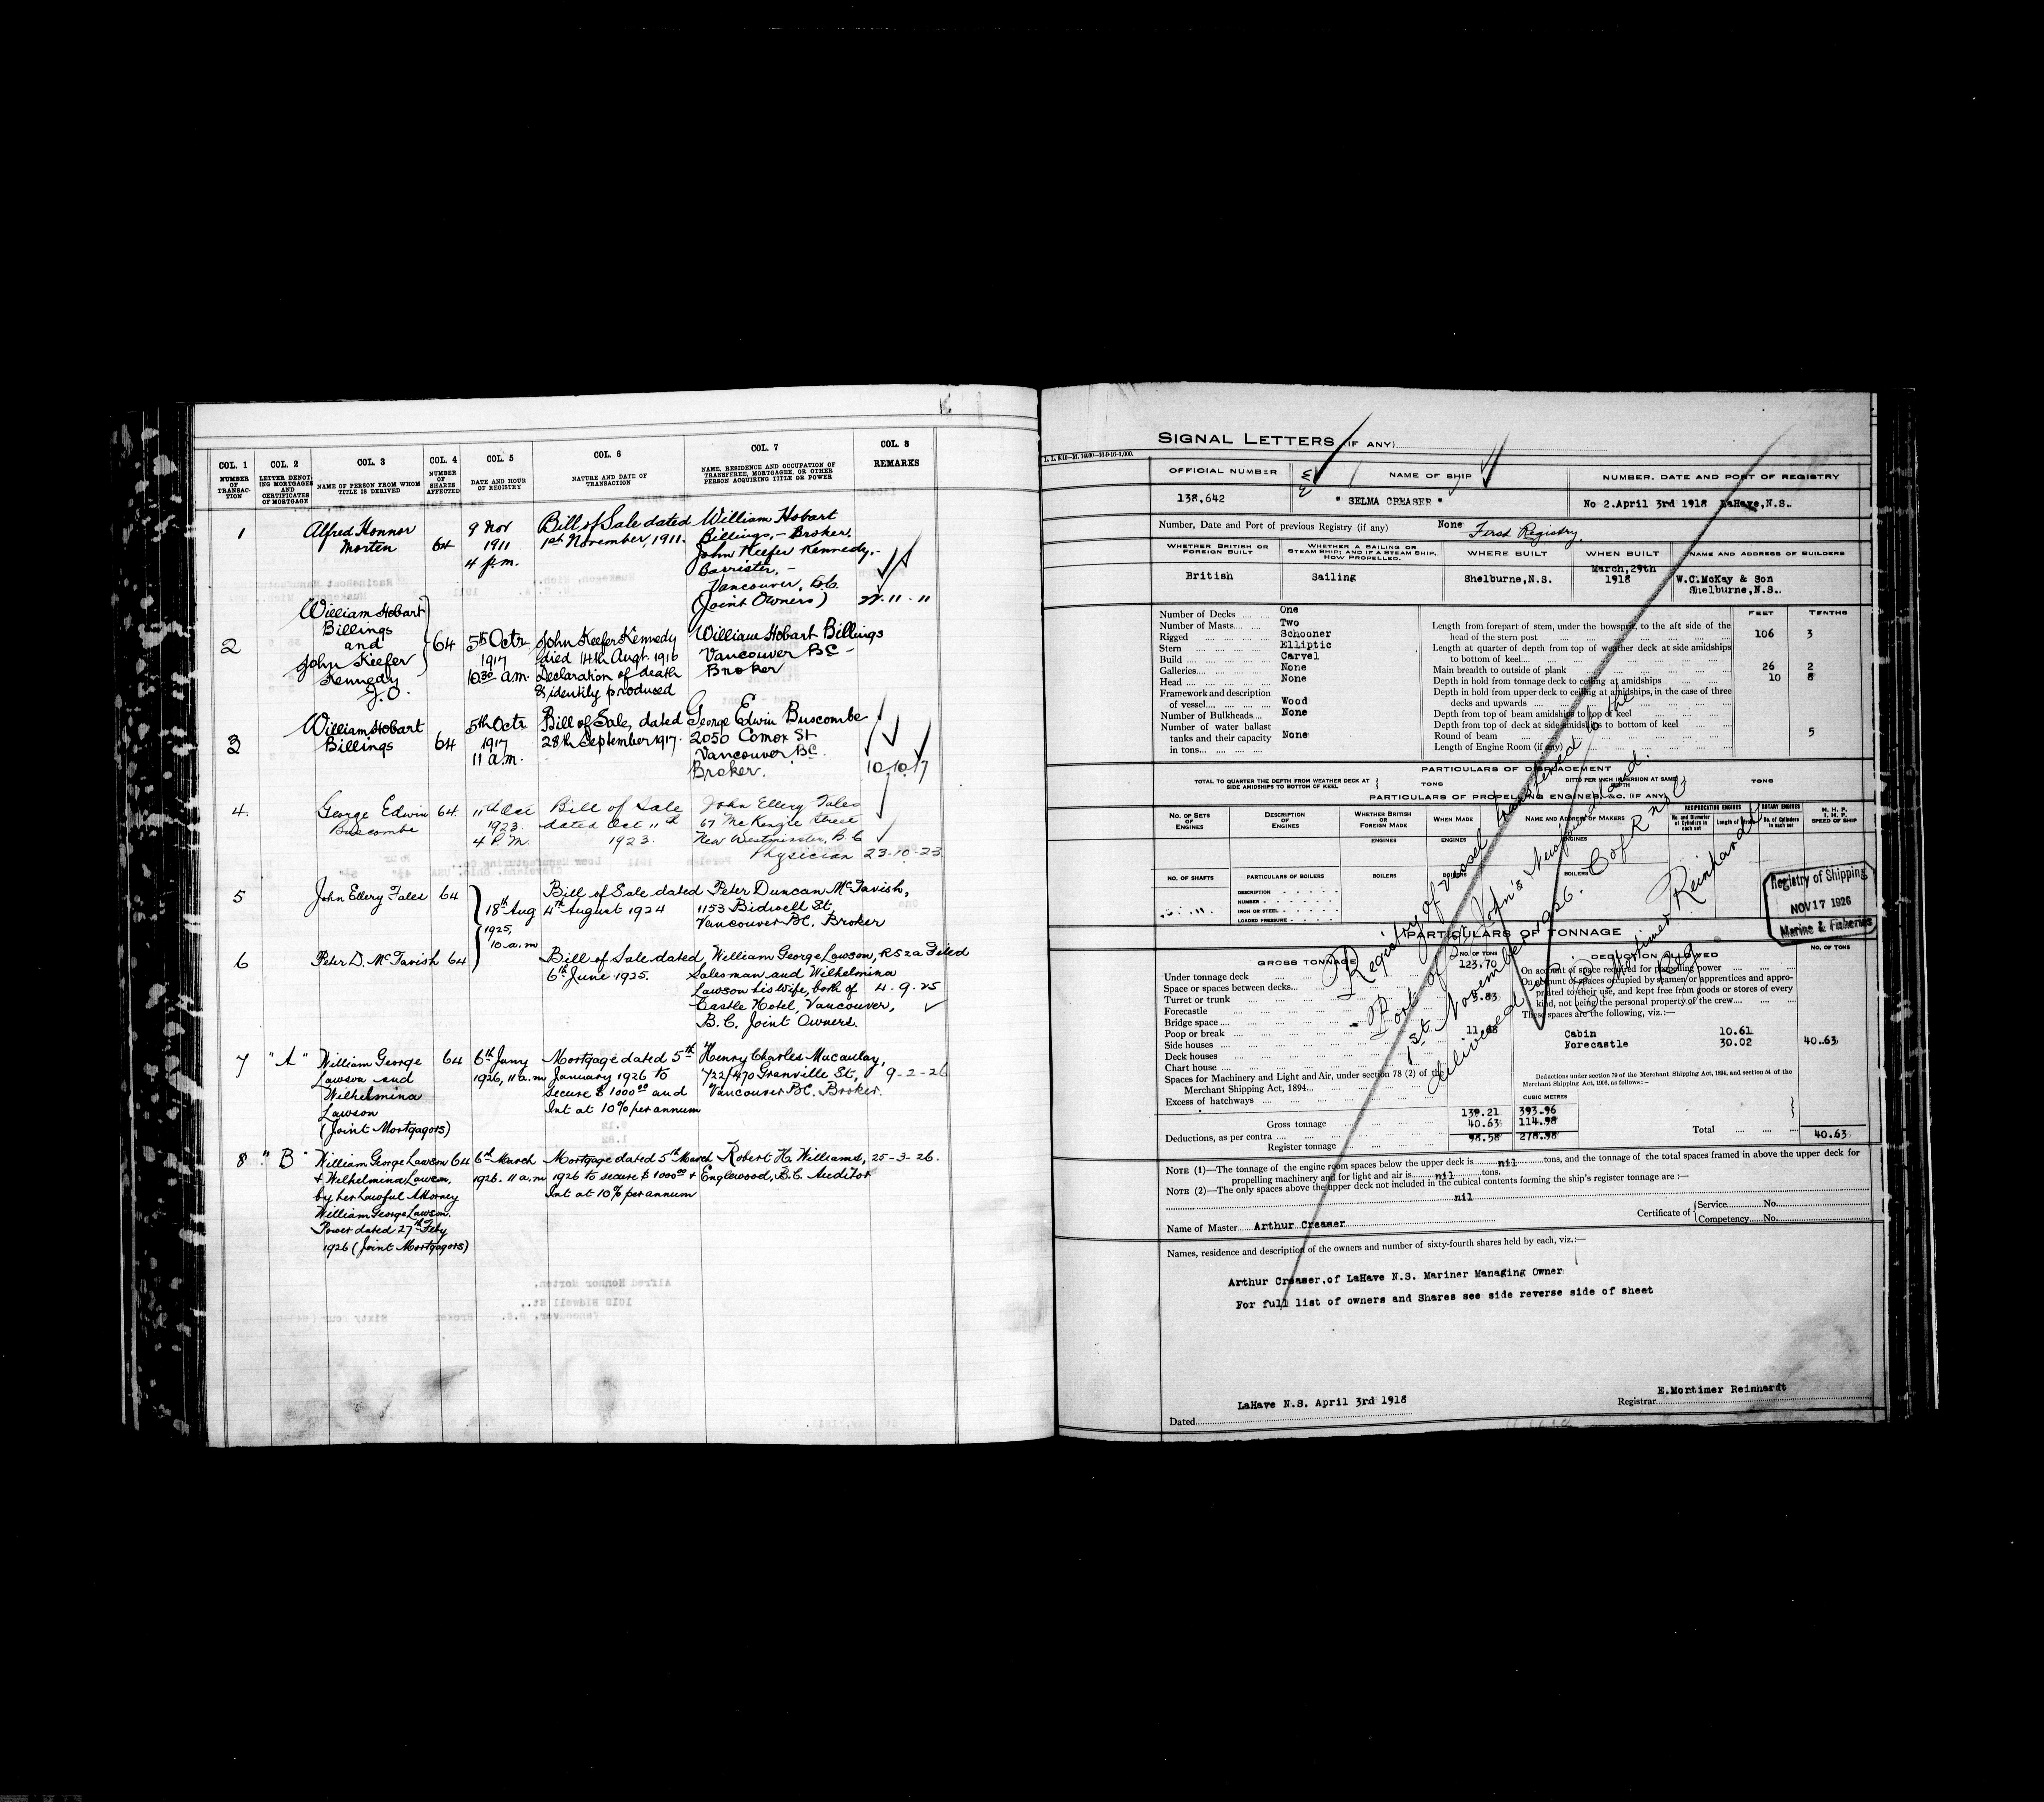 COL. 1
NUMBER
OF
TRANSAC-
TION
COL. 2
LETTER DENOT-
ING MORTGAGES
AND
CERTIFICATES
OF MORTGAGE
COL. 3
NAME OF PERSON FROM WHOM
TITLE IS DERIVED
COL. 4
NUMBER
OF
SHARES
AFFECTED
COL. 5
DATE AND HOUR
OF REGISTRY
COL. 6
NATURE AND DATE OF
TRANSACTION
COL. 7
NAME, RESIDENCE AND OCCUPATION OF
TRANSFEREE, MORTGAGEE, OR OTHER
PERSON ACQUIRING TITLE OR POWER
COL. 8
REMARKS
1
Alfred Honnor
Morten
64
9 Nov
1911
4 p.m.
Bill of Sale dated
1st November, 1911.
William Hobart
Billings, - Broker.
John Keefer Kennedy, -
Barrister, -
Vancouver, B.C.
(Joint Owners)
22.11.11
2
William Hobart
Billings
and
John Keefer
Kennedy
J.O.
64
5th Octr
1917
10.30 a.m.
John Keefer Kennedy
died 14th Augt. 1916
Declaration of death
& identity produced
William Hobart Billings
Vancouver BC -
Broker
3
William Hobart
Billings
64
5th Octr
1917
11 a.m.
Bill of Sale, dated
28th September 1917.
George Edwin Buscombe
2050 Comox St
Vancouver BC.
Broker.
10.10.17
4.
George Edwin
Buscombe
64.
11th Oct
1923.
4 P.M.
Bill of Sale
dated Oct 11th
1923.
John Ellery Tales
67 McKenzie Street
New Westminster, B.C
Physician
23-10-23.
5
John Ellery Tales
64
18th Aug
1925,
10 a.m
Bill of Sale dated
4th August 1924
Peter Duncan McTavish,
1153 Bidwell St,
Vancouver BC. Broker
6
Peter D. McTavish
64
Bill of Sale dated
6th June 1925.
William George Lawson,
Salesman and Wilhelmina
Lawson his wife, both of
Castle Hotel, Vancouver,
B.C. Joint Owners.
RS2a Filed
4.9.25
7
"A"
William George
Lawson and
Wilhelmina
Lawson
(Joint Mortgagors)
64
6th Jany
1926, 11 a.m
Mortgage dated 5th
January 1926 to
secure $1000.00 and
Int at 10% per annum
Henry Charles Macaulay,
722/470 Granville St,
Vancouver BC. Broker.
9-2-26
8
"B"
William George Lawson
& Wilhelmina Lawson,
by her Lawful Attorney
William George Lawson.
Power dated 27th Feby
1926 (Joint Mortgagors)
64
6th March
1926. 11 a.m
Mortgage dated 5th March
1926 to secure $1000.00 &
Int at 10% per annum
Robert H. Williams,
Englewood, B.C. Auditor
25-3-26.
SIGNAL LETTERS (IF ANY)
OFFICIAL NUMBER
138,642
NAME OF SHIP
" SELMA CREASER "
NUMBER, DATE AND PORT OF REGISTRY
No 2.April 3rd 1918 LaHave,N.S.
Number, Date and Port of previous Registry (if any)
None
First Registry.
WHETHER BRITISH OR
FOREIGN BUILT
British
WHETHER A SAILING OR
STEAM SHIP; AND IF A STEAM SHIP,
HOW PROPELLED.
Sailing
WHERE BUILT
Shelburne,N.S.
WHEN BUILT
March,29th
1918
NAME AND ADDRESS OF BUILDERS
W.C.McKay & Son
Shelburne,N.S.
Number of Decks
One
Number of Masts
Two
Rigged
Schooner
Stern
Elliptic
Build
Carvel
Galleries
None
Head
None
Framework and description
of vessel
Wood
Number of Bulkheads
None
Number of water ballast
tanks and their capacity
in tons
None
FEET
TENTHS
Length from forepart of stem, under the bowsprit, to the aft side of the
head of the stern post
106
3
Length at quarter of depth from top of weather deck at side amidships
to bottom of keel
Main breadth to outside of plank
26
2
Depth in hold from tonnage deck to ceiling at amidships
10
8
Depth in hold from upper deck to ceiling at amidships, in the case of three
decks and upwards
Depth from top of beam amidships to top of keel
Depth from top of deck at side amidships to bottom of keel
Round of beam
5
Length of Engine Room (if any)
PARTICULARS OF DISPLACEMENT
TOTAL TO QUARTER THE DEPTH FROM WEATHER DECK AT
SIDE AMIDSHIPS TO BOTTOM OF KEEL
TONS
DITTO PER INCH IMMERSION AT SAME
DEPTH
TONS
PARTICULARS OF PROPELLING ENGINES, &C. (IF ANY)
NO. OF SETS
OF
ENGINES
DESCRIPTION
OF
ENGINES
WHETHER BRITISH
OR
FOREIGN MADE
WHEN MADE
NAME AND ADDRESS OF MAKERS
RECIPROCATING ENGINES
ROTARY ENGINES
No. and Diameter
of Cylinders in
each set
Length of Stroke
No. of Cylinders
in each set
N. H. P.
I. H. P.
SPEED OF SHIP
ENGINES
ENGINES
ENGINES
NO. OF SHAFTS
PARTICULARS OF BOILERS
BOILERS
BOILERS
BOILERS
DESCRIPTION
NUMBER
IRON OR STEEL
LOADED PRESSURE
Registry of Shipping
NOV 17 1926
Marine & Fisheries
PARTICULARS OF TONNAGE
GROSS TONNAGE
NO. OF TONS
Under tonnage deck
123.70
Space or spaces between decks
Turret or trunk
3.83
Forecastle
Bridge space
Poop or break
11.68
Side houses
Deck houses
Chart house
Spaces for Machinery and Light and Air, under section 78 (2) of the
Merchant Shipping Act, 1894
Excess of hatchways
CUBIC METRES
Gross tonnage
139.21
393.96
Deductions, as per contra
40.63
114.98
Register tonnage
98.58
278.98
DEDUCTION ALLOWED
NO. OF TONS
On account of space required for propelling power
On account of spaces occupied by seamen or apprentices and appro-
priated to their use, and kept free from goods or stores of every
kind, not being the personal property of the crew
These spaces are the following, viz.:—
Cabin 10.61
Forecastle 30.02
40.63
Deductions under section 79 of the Merchant Shipping Act, 1894, and section 54 of the
Merchant Shipping Act, 1906, as follows:—
Total
40.63
Registry of vessel transferred to the
Port of St John's Newfoundland.
1st November 1926. C of R
delivered up
E Mortimer Reinhardt
Reg
NOTE (1)—The tonnage of the engine room spaces below the upper deck is nil tons, and the tonnage of the total spaces framed in above the upper deck for
propelling machinery and for light and air is nil tons.
NOTE (2)—The only spaces above the upper deck not included in the cubical contents forming the ship's register tonnage are :—
nil
Name of Master Arthur Creaser
Certificate of
Service No.
Competency No.
Names, residence and description of the owners and number of sixty-fourth shares held by each, viz.:—
Arthur Creaser,of LaHave N.S. Mariner Managing Owner
For full list of owners and Shares see side reverse side of sheet
Dated LaHave N.S. April 3rd 1918
E.Mortimer Reinhardt
Registrar